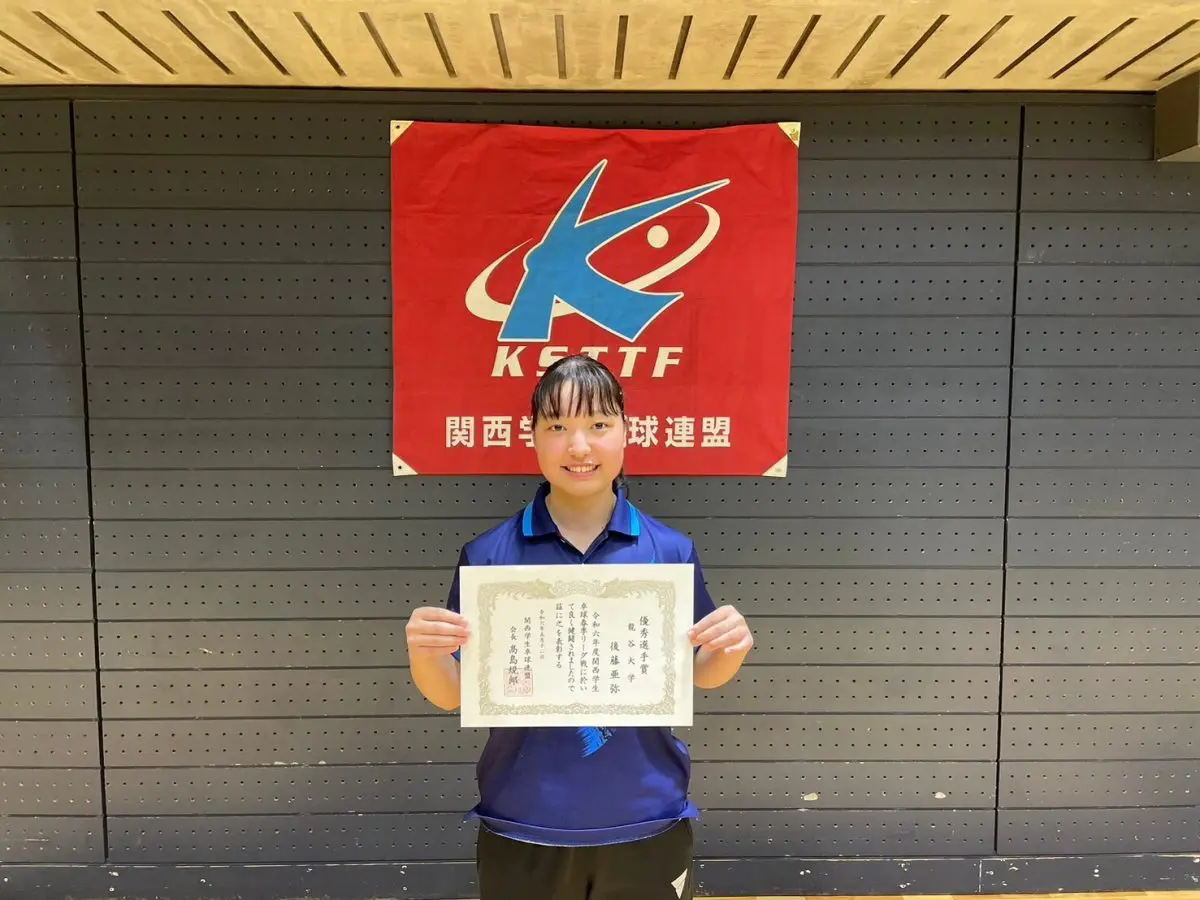 KSTTF
関西学 球連盟
優秀選手賞
龍谷大学
後藤亜弥
令和六年度関西学生
卓球春季リーグ戦に於い
て良く健闘されましたので
茲に之を表彰する
令和六年五月十二日
関西学生卓球連盟
会長 髙島規郎